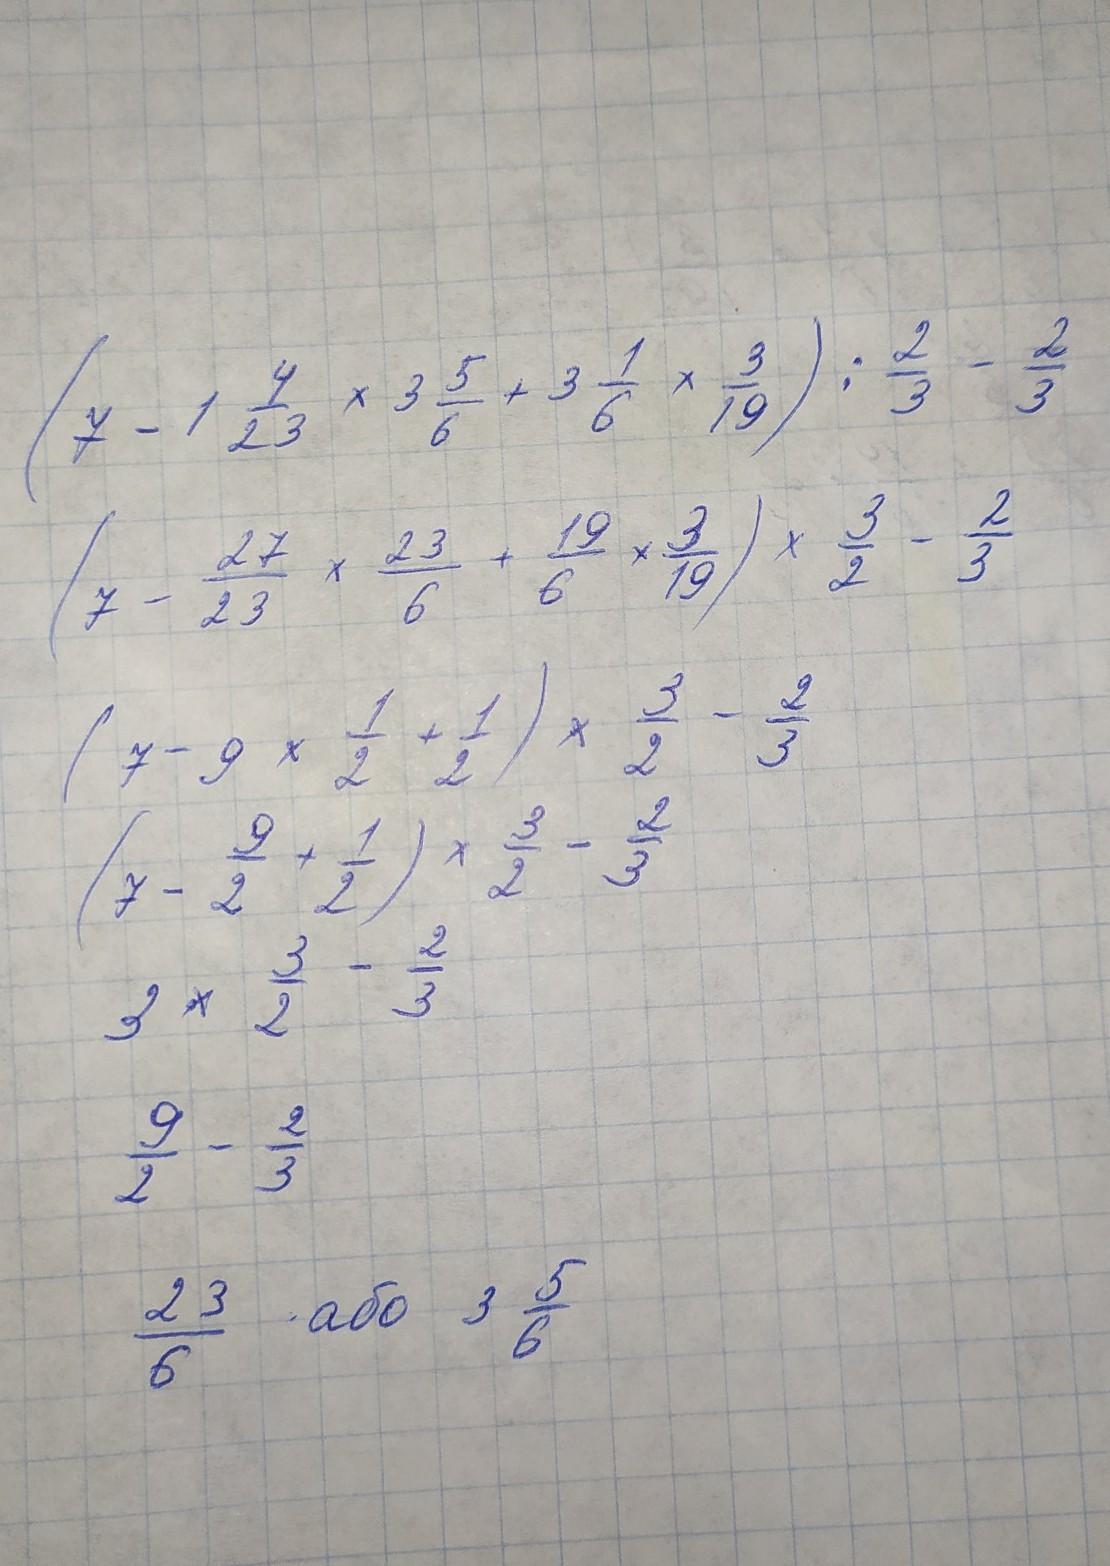 (7 - 1 4/23 × 3 5/6 + 3 1/6 × 3/19) : 2/3 - 2/3
(7 - 27/23 × 23/6 + 19/6 × 3/19) × 3/2 - 2/3
(7 - 9 × 1/2 + 1/2) × 3/2 - 2/3
(7 - 9/2 + 1/2) × 3/2 - 2/3
3 × 3/2 - 2/3
9/2 - 2/3
23/6 або 3 5/6